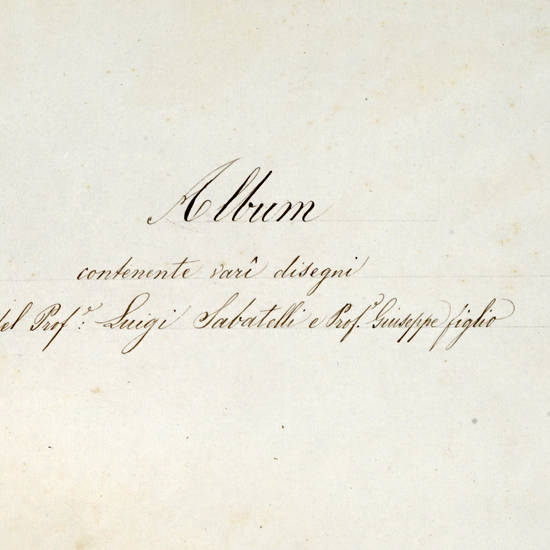 Album
contenente varî disegni
del Prof.ʳ: Luigi Sabatelli e Prof.ʳ Giuseppe figlio